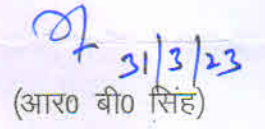 31/3/23
(आर० बी० सिंह)